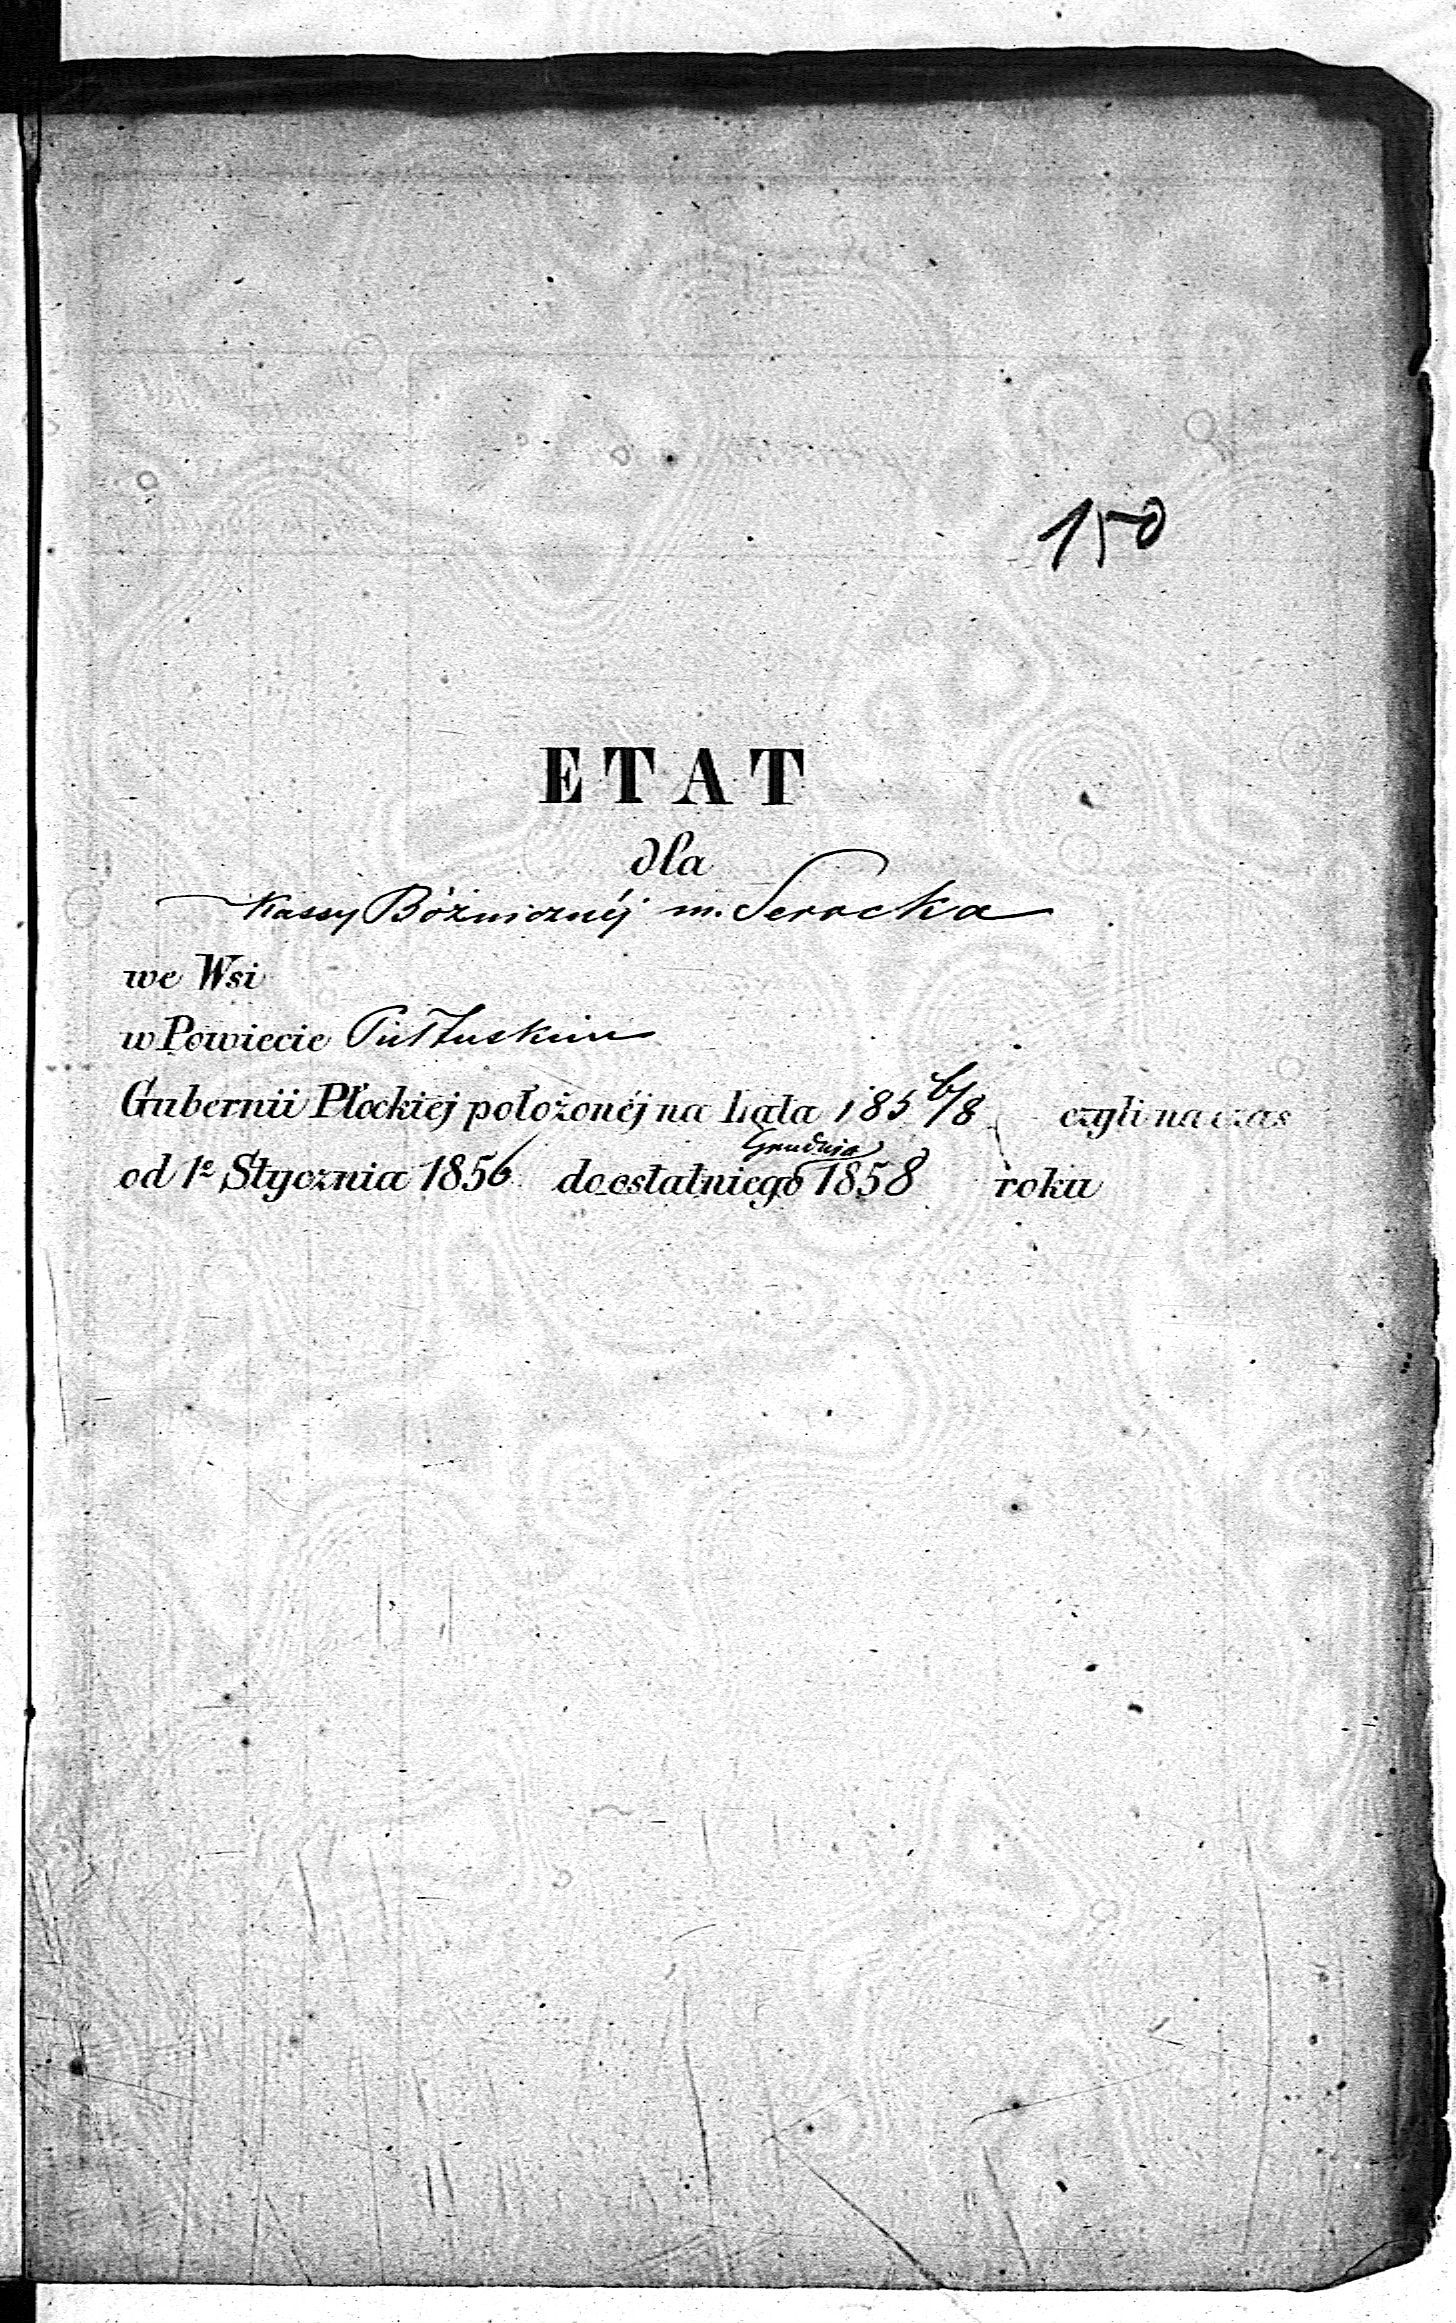 150
ETAT
dla
Kassy Bóżnicznéj m. Serocka
we Wsi
w Powiecie Pułtuskim
Gubernii Płockiéj położonéj na Lata 1856/8 czyli na czas
Grudnia
od 1º Stycznia 1856 do ostatniego 1858 roku